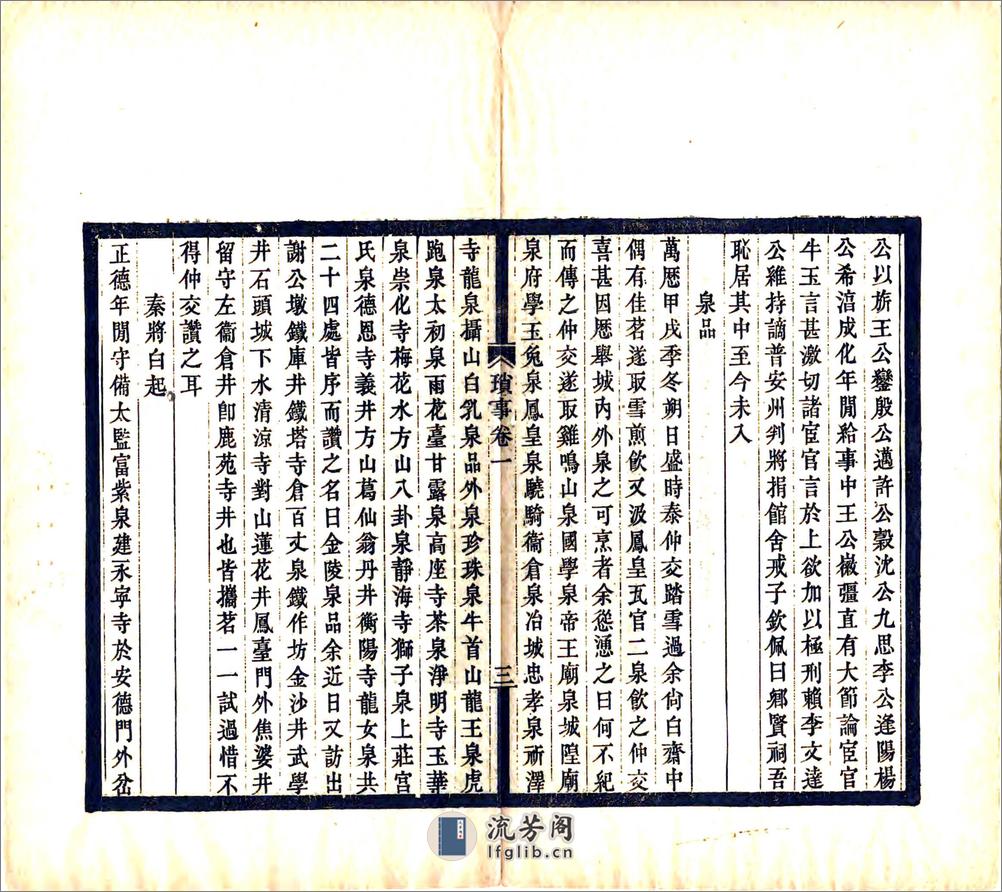 公以旂王公鑾殷公邁許公穀沈公九思李公逢陽楊
公希湻成化年閒給事中王公徽彊直有大節論宦官
牛玉言甚激切諸宦官言於上欲加以極刑賴李文達
公維持謫普安州判將捐館舍戒子欽佩曰鄉賢祠吾
恥居其中至今未入
泉品
萬厯甲戌季冬朔日盛時泰仲交踏雪過余尙白齋中
偶有佳茗遂取雪煎飮又汲鳳皇瓦官二泉飮之仲交
喜甚因厯舉城內外泉之可烹者余慫慂之曰何不紀
而傳之仲交遂取雞鳴山泉國學泉帝王廟泉城隍廟
泉府學玉兔泉鳳皇泉驍騎衞倉泉冶城忠孝泉祈澤
瑣事卷一
三
寺龍泉攝山白乳泉品外泉珍珠泉牛首山龍王泉虎
跑泉太初泉雨花臺甘露泉高座寺茶泉淨明寺玉華
泉崇化寺梅花水方山八卦泉靜海寺獅子泉上莊宫
氏泉德恩寺義井方山葛仙翁丹井衡陽寺龍女泉共
二十四處皆序而讚之名曰金陵泉品余近日又訪出
謝公墩鐵庫井鐵塔寺倉百丈泉鐵作坊金沙井武學
井石頭城下水清凉寺對山蓮花井鳳臺門外焦婆井
留守左衞倉井卽鹿苑寺井也皆攜茗一一試過惜不
得仲交讚之耳
秦將白起
正德年閒守備太監富紫泉建永寧寺於安德門外岔
流芳阁
lfglib.cn